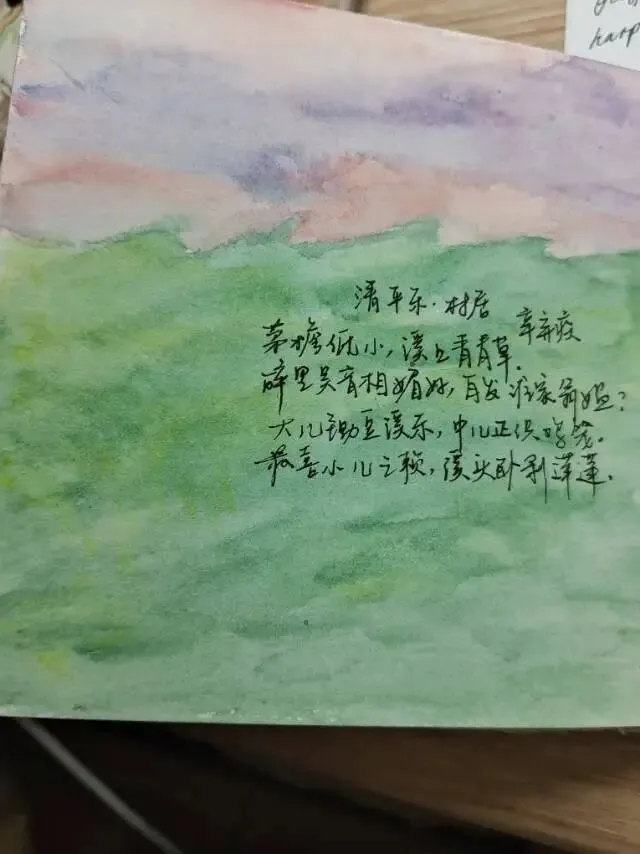 清平乐·村居
辛弃疾
茅檐低小,溪上青青草.
醉里吴音相媚好,白发谁家翁媪?
大儿锄豆溪东,中儿正织鸡笼.
最喜小儿亡赖,溪头卧剥莲蓬.